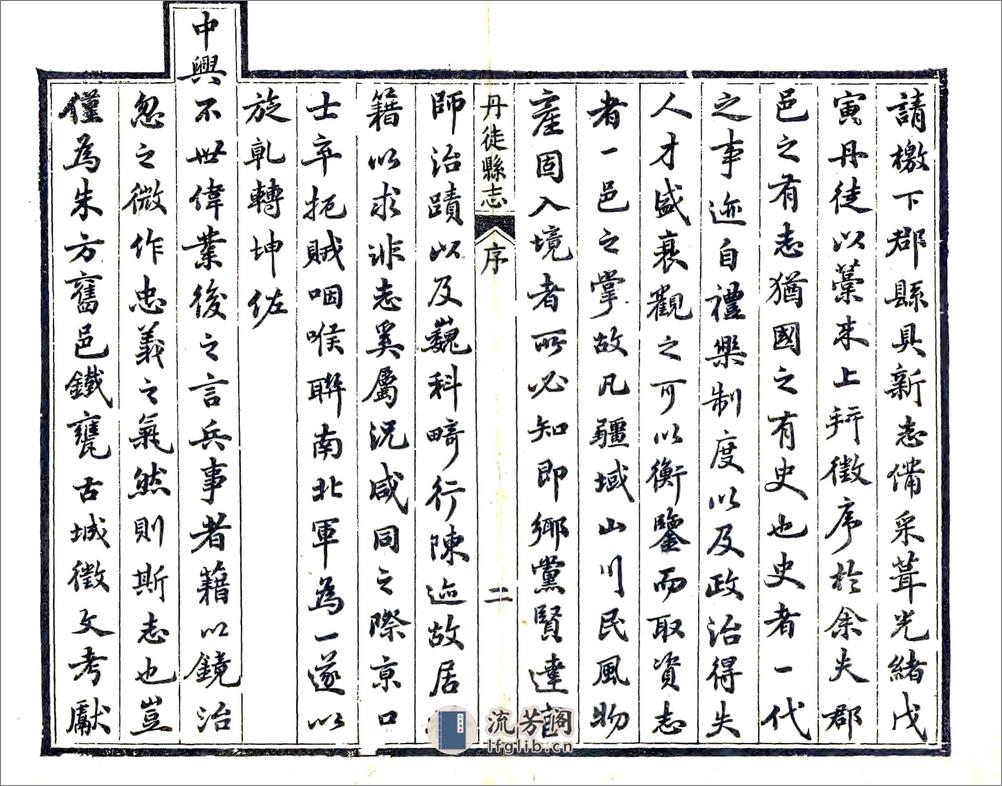 請檄下郡縣具新志備采葺光緒戊
寅丹徒以藁来上幷徵序於余夫郡
邑之有志猶國之有史也史者一代
之事迹自禮樂制度以及政治得失
人才盛衰觀之可以衡鑒而取資志
者一邑之掌故凡疆域山川民風物
產固入境者所必知即鄉黨賢達
丹徒縣志
序
二
師治蹟以及巍科畸行陳迹故居
籍以求非志奚屬況咸同之際京口
士卒扼賊咽喉聨南北軍為一遂以
旋乹轉坤佐
中興不世偉業後之言兵事者藉以鏡治
忽之微作忠義之氣然則斯志也豈
僅為朱方舊邑鐵甕古城徵文考獻
流芳阁
lfglib.cn